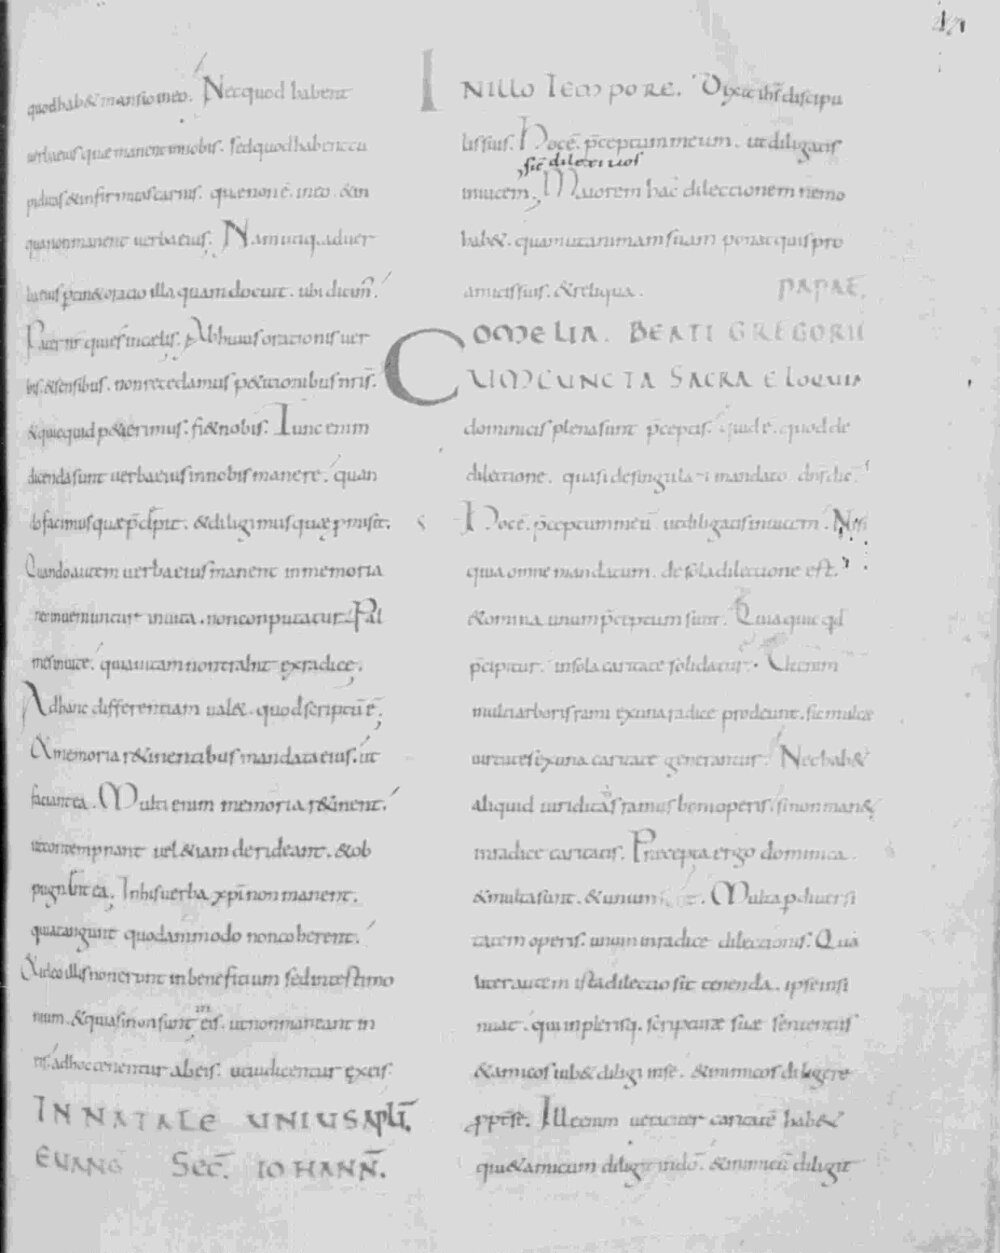 quod hab& mansio meo. Nec quod habent
uerba eius quae manent in nobis. sed quod habent cu
piditas & infirmitas carnis. quae non ē in eo. & in
qua non manent uerba eius; Nam utiq. ad uer
ba eius ptin& oratio illa quam docuit. ubi dicim̄.
Pater nr̄ qui es in caelis; Ab huius orationis uer
bis. & sensibus. non recedamus p&itionibus nr̄is.
& quicquid p&ierimus. fi& nobis. Tunc enim
dicenda sunt uerba eius in nobis manere. quan
do facimus quae p̄cepit. & diligimus quae pmisit.
Quando autem uerba eius manent in memoria
nec inueniuntur in uita. non conputatur Pal
mes in uite. quia uitam non trahit ex radice;
Ad hanc differentiam ual&. quod scriptū ē;
& memoria r&inentibus mandata eius. ut
faciant ea. Multi enim memoria r&inent.
ut contempnant uel &iam derideant. & ob
pugnent ea; In his uerba xpī non manent.
quia tangunt quodammodo non coherent.
& ideo illis non erunt in beneficium sed in testimo
nium. & quia sic insunt in eis. ut non maneant in
eis. ad hoc tenentur ab eis. ut iudicentur ex eis.
IN NATALE UNIUS APLI.
EUANḠ SEC̄. IOHANN̄.
IN ILLO TEMPORE. Dixit ihs̄ discipu
lis suis. Hoc ē. p̄ceptum meum. ut diligatis
inuicem, sic̄ dilexi uos Maiorem hac dilectionem nemo
hab&. quam ut animam suam ponat quis pro
amicis suis. & reliqua.
PAPAE.
OMELIA. BEATI GREGORII
CUM CUNCTA SACRA ELOQUIA
dominicis plena sunt p̄ceptis. quid ē. quod de
dilectione. quasi de singulari mandato dn̄s dic̄
Hoc ē. p̄ceptum meū ut diligatis inuicem. Nisi
quia omne mandatum. de sola dilectione est.
& omnia unum p̄ceptum sunt. Quia quicqd
p̄cipitur. in sola caritate solidatur. Ut enim
multi arboris rami ex una radice prodeunt. sic multae
uirtutes ex una caritate generantur. Nec hab&
aliquid uiriditatis ramus boni operis. si non man&
in radice caritatis. Praecepta ergo dominica
& multa sunt. & unum sunt. Multa p diuersi
tatem operis. unum in radice dilectionis. Qua
liter autem ista dilectio sit tenenda. ipse insi
nuat. qui in plerisq. scripturae suae sententiis
& amicos iub& diligi in se. & inimicos diligere
ppt̄ se. Ille enim ueraciter caritatē hab&
qui & amicum diligit in dō. & inimicū diligit